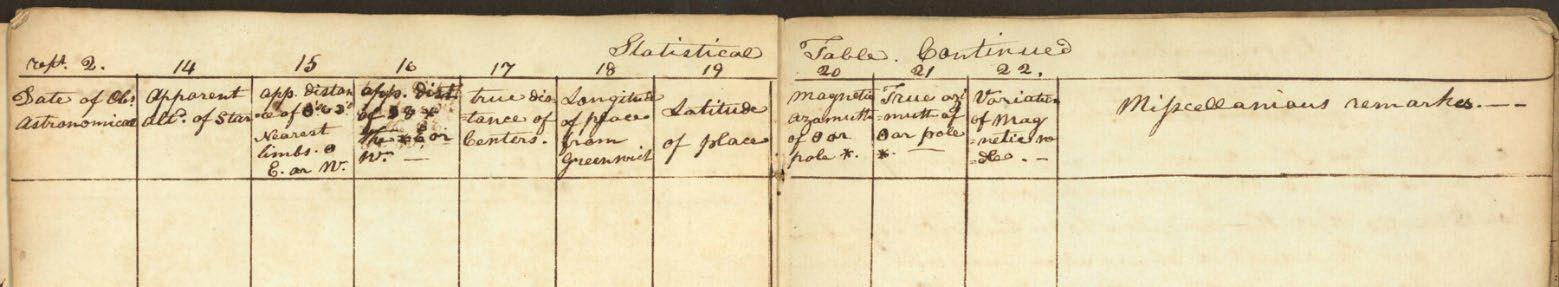 Statistical Table. Continued
rept. 2. 14 15 16 17 18 19 20 21 22.
Date of Obs.
Astronomical
Apparent
Altd. of Star
app. distan
=ce of ☉ & ☽'s
Nearest
limbs. ☉
E. or W.
app. dist
of ☽ & *
The * E or
W. —
true dis
=tance of
Centers.
Longitude
of place
from
Greenwich
Latitude
of place
Magnetic
azamuth
of ☉ or
pole *.
True azi
=muth of
☉ or pole
*. —
Variation
of Mag
=netic
Miscellanious remarks. — —